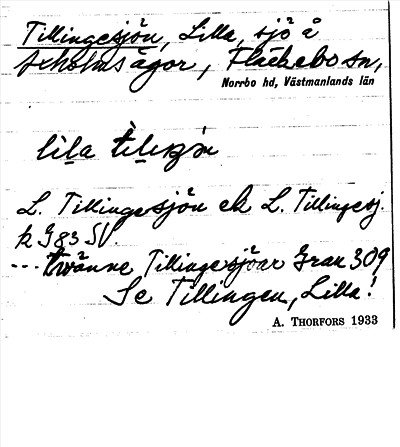 Tillingesjön, Lilla, sjö å
ägor, Fläckebo sn,
Norrbo hd, Västmanlands län
lila
L. Tillingesjön ek L. Tillingesj.
k J83 SV.
... tvänne Tillingesjöar Grau 309
Se Tillingen, Lilla!
A. THORFORS 1933